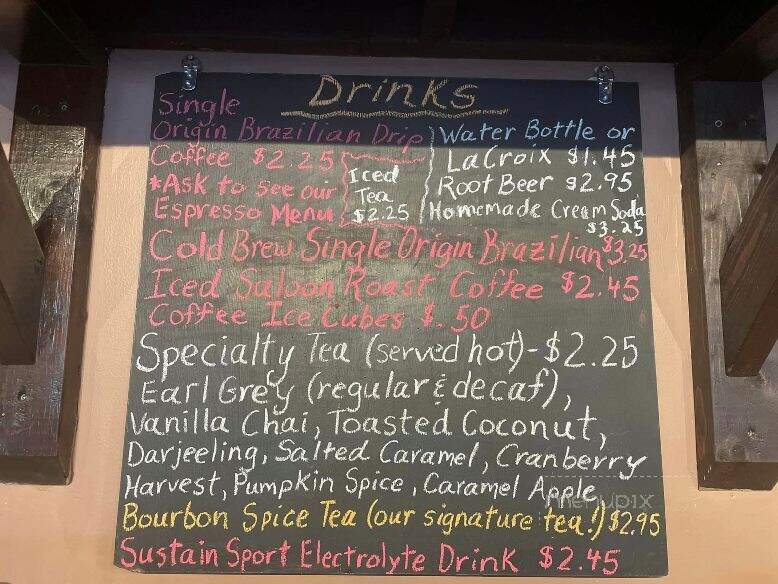 Drinks
Single
Origin Brazilian Drip
Coffee $2.25
*Ask to see our
Espresso Menu
Iced
Tea
$2.25
Water Bottle or
LaCroix $1.45
Root Beer $2.95
Homemade Cream Soda
$3.25
Cold Brew Single Origin Brazilian $3.25
Iced Saloon Roast Coffee $2.45
Coffee Ice Cubes $.50
Specialty Tea (served hot)-$2.25
Earl Grey (regular & decaf),
Vanilla Chai, Toasted Coconut,
Darjeeling, Salted Caramel, Cranberry
Harvest, Pumpkin Spice, Caramel Apple
menupix
Bourbon Spice Tea (our signature tea!) $2.95
Sustain Sport Electrolyte Drink $2.45